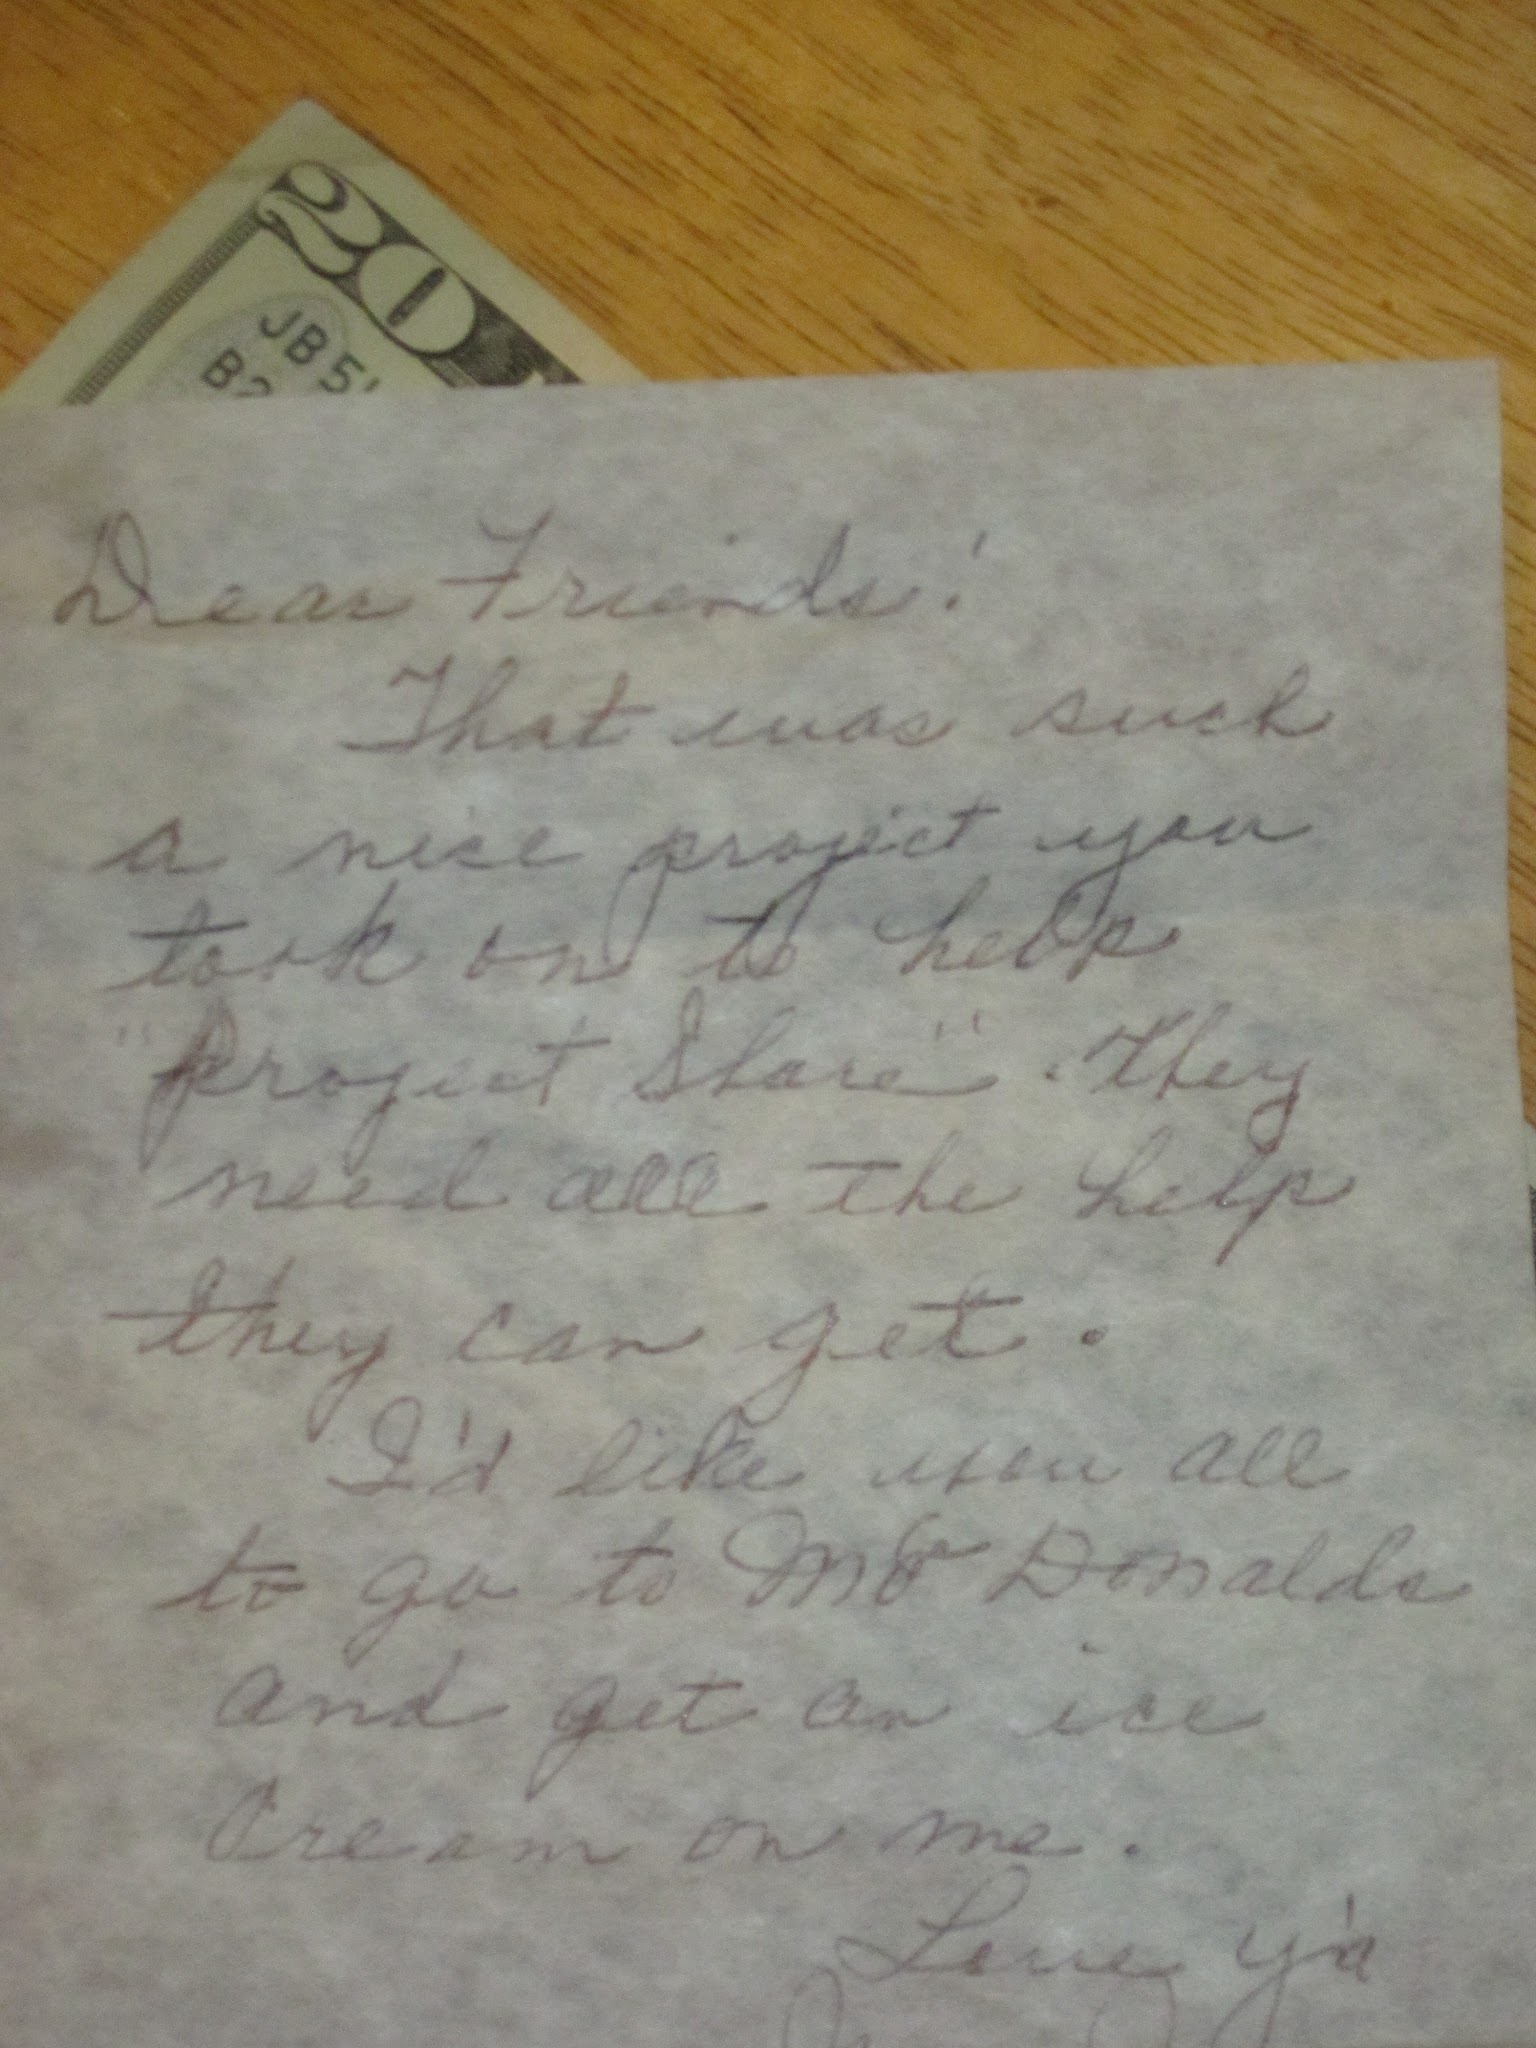 20
JB5
B2
Dear Friends!
That was such
a nice project you
took on to help
"Project Share". They
need all the help
they can get.
I'd like you all
to go to McDonalds
and get an ice
Cream on me.
Love y'a